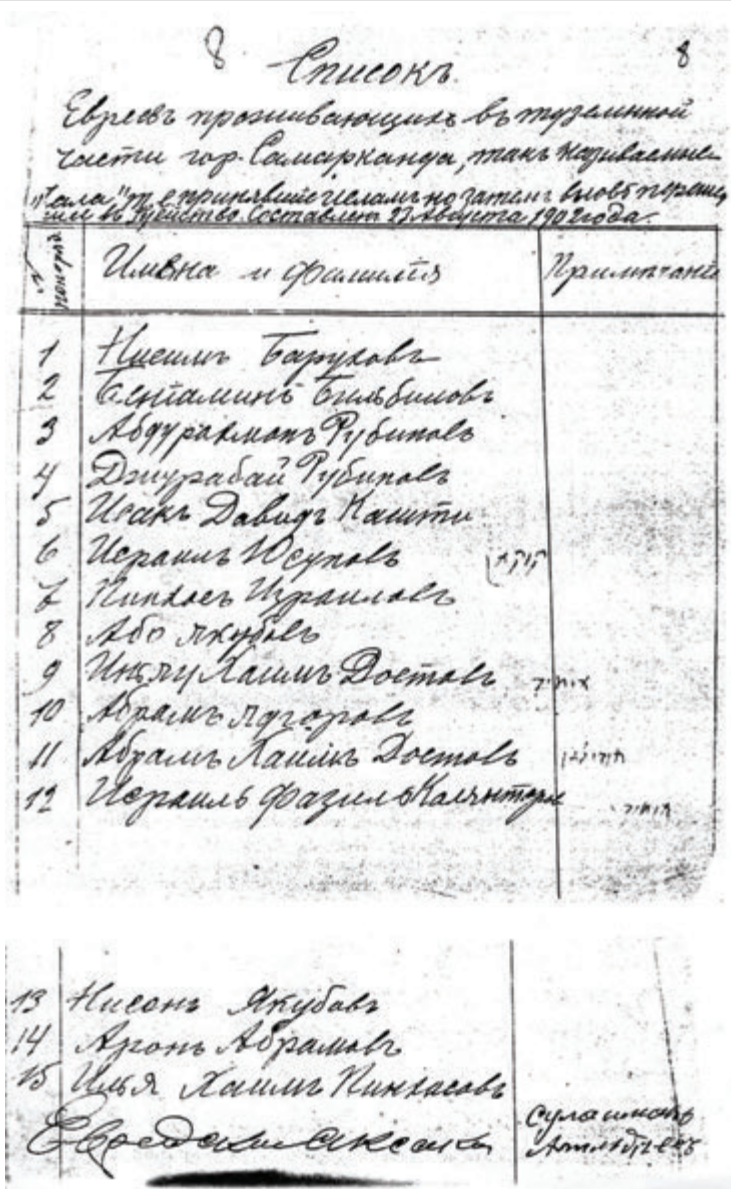 8 8
Списокъ.
Евреевъ проживающихъ въ туземной
части гор. Самарканда, такъ называемые
"Чала" т е принявшие исламъ но затемъ вновь переше
шие въ Іудейство. Составленъ 27 Августа 1902 года.
№ Имена и фамилія Примѣчаніе
1 Нисимъ Баруховъ
2 Беніаминъ Бильбиловъ
3 Абдурахманъ Рубиновъ
4 Джурабай Рубиновъ
5 Исакъ Давидъ Кашти
6 Исраилъ Юсуповъ
7 Пинхосъ Израиловъ
8 Або Якубовъ
9 Хаимъ Достовъ
10 Абрамъ
11 Абрамъ Хаимъ Достовъ
12 Исраиль Фазилъ
13 Нисонъ Якубовъ
14 Аронъ Абрамовъ
15 Илья Хаимъ Пинхасовъ
Сулаиманъ